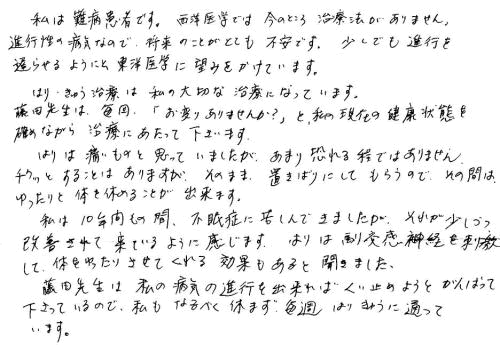 私は難病患者です。西洋医学では今のところ治療法がありません。
進行性の病気なので、将来のことがとても不安です。少しでも進行を
遅らせるようにと東洋医学に望みをかけています。
はり・きゅう治療は私の大切な治療になっています。
藤田先生は、毎回、「お変りありませんか?」と、私の現在の健康状態を
確めながら治療にあたって下さいます。
はりは痛いものと思っていましたが、あまり恐れる程ではありません。
チクッとすることはありますが、そのまま、置きばりにしてもらうので、その間は、
ゆったりと体を休めることが出来ます。
私は10年間もの間、不眠症に苦しんできましたが、それが少しづつ
改善されて来ているように感じます。はりは副交感神経を刺激
して、体をゆったりさせてくれる効果もあると聞きました。
藤田先生は私の病気の進行を出来ればくい止めようとがんばって
下さっているので、私もなるべく休まず毎週はりきゅうに通って
います。